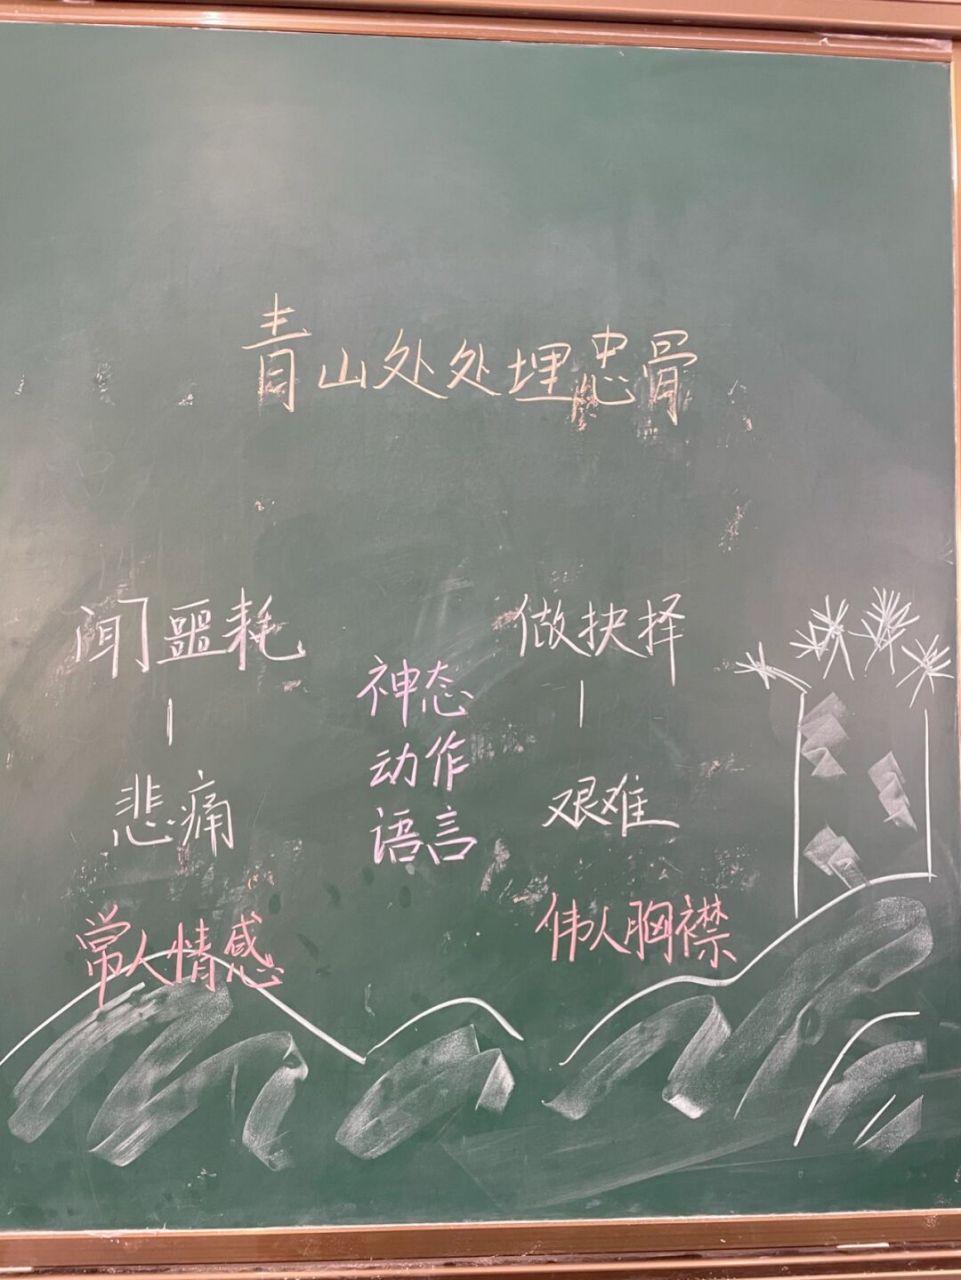 青山处处埋忠骨
闻噩耗
做抉择
神态
动作
语言
悲痛
艰难
常人情感
伟人胸襟